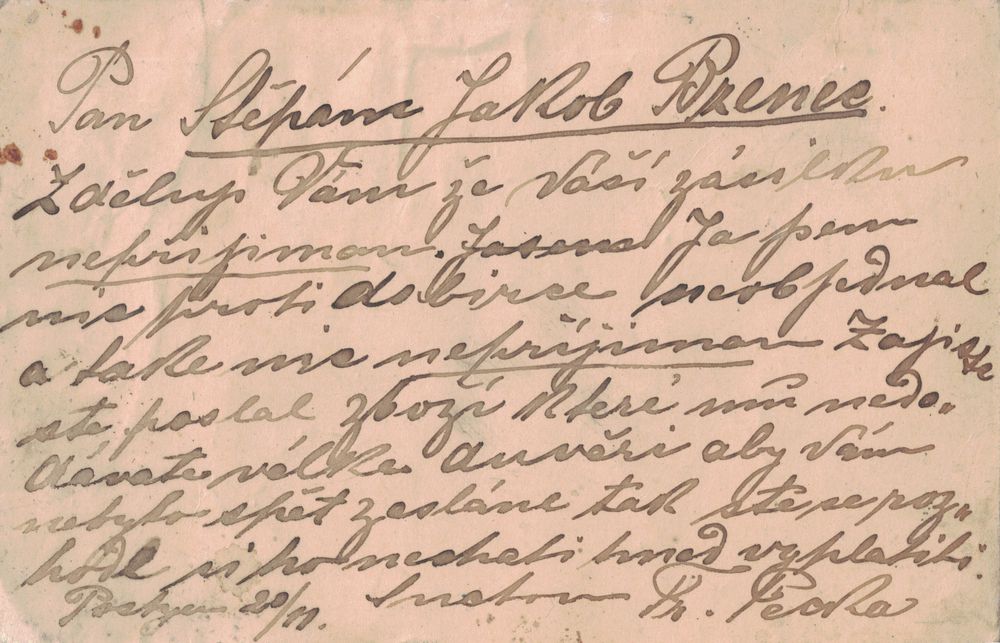 Pan Štěpán Jakob Brzenec.
Zděluji Vám že Vaší zásilku
nepřijimam. Jasem Ja jsem
nic proti dobirce neobjednal
a take nic nepřijimam Zajiste
ste poslal zboží které mů nedo„
dávate velke duvěři aby Vám
nebylo spět zesláne tak ste se roz„
hodl si ho nechati hned vyplatiti.
20/11. Pecka